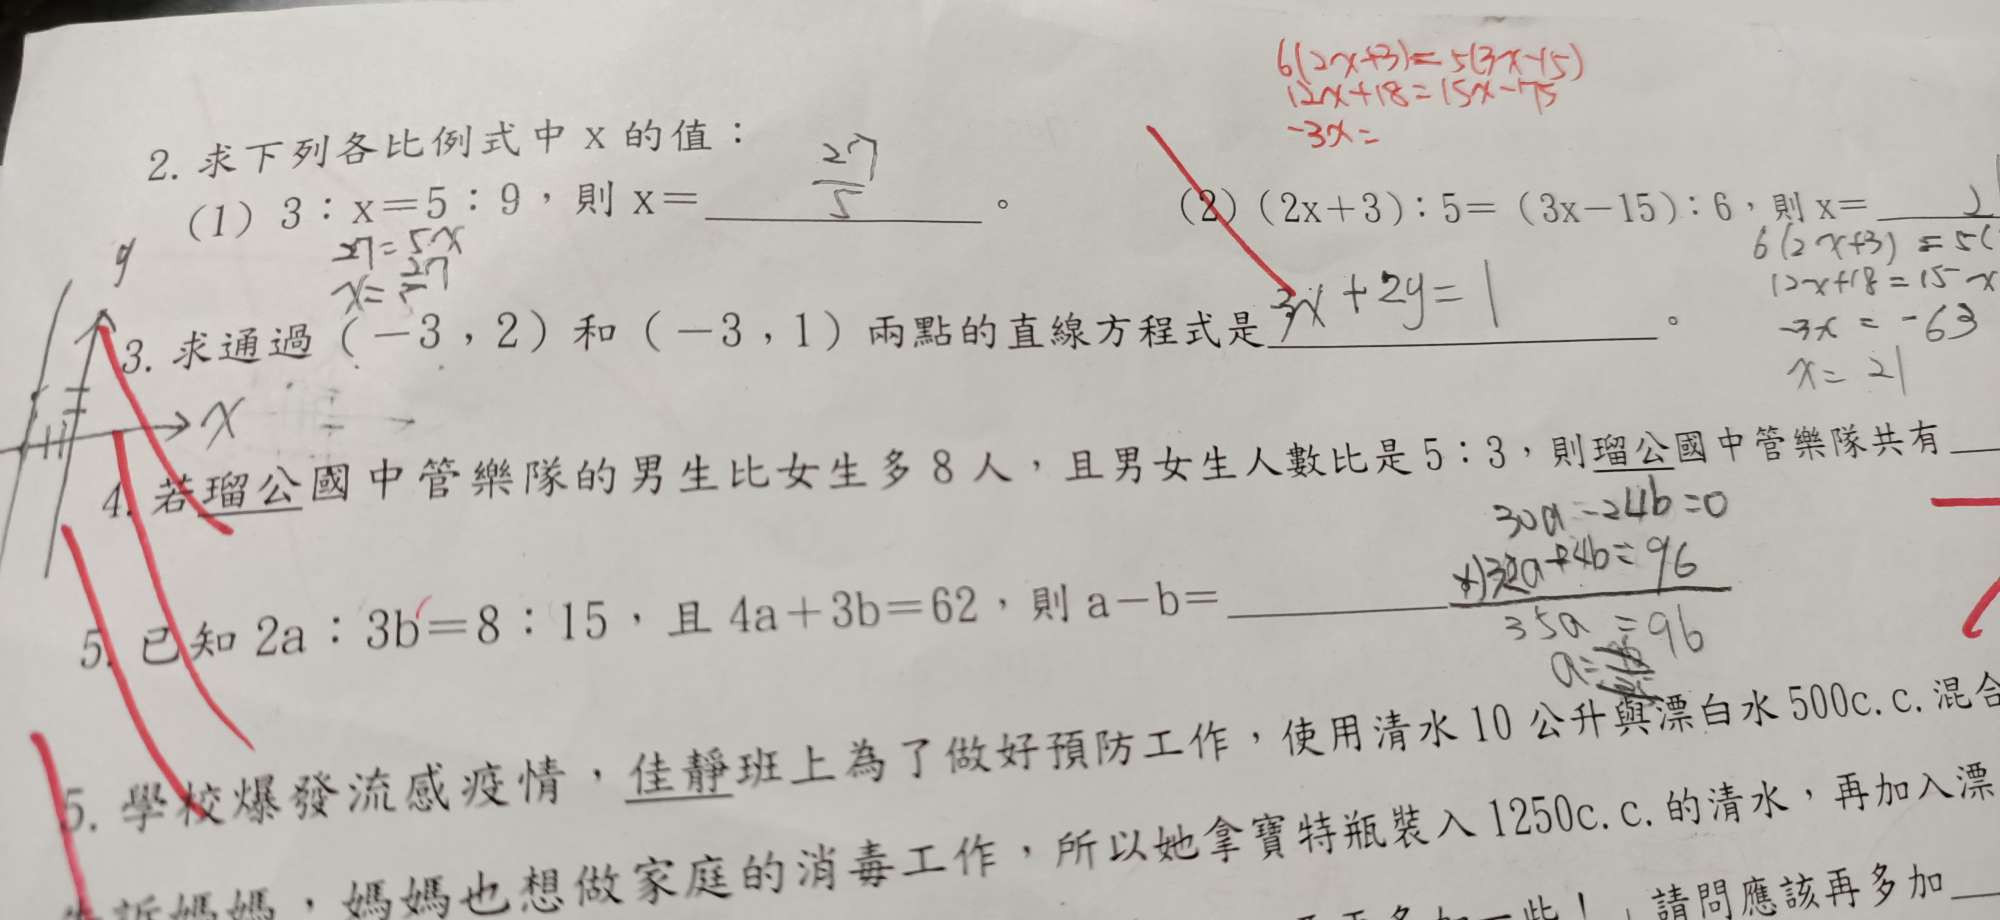 6(2x+3)=5(3x-15)
12x+18=15x-75
-3x=
2. 求下列各比例式中 x 的值：
(1) 3：x＝5：9，則 x＝ 27/5 。
(2)（2x＋3）：5＝（3x－15）：6，則 x＝ 2
27=5x
x=27/5
6(2x+3) = 5(
12x+18=15x
-3x = -63
x= 21
y
x
3. 求通過（－3，2）和（－3，1）兩點的直線方程式是 3x+2y=1 。
4. 若瑠公國中管樂隊的男生比女生多 8 人，且男女生人數比是 5：3，則瑠公國中管樂隊共有
30a-24b=0
5. 已知 2a：3b＝8：15，且 4a＋3b＝62，則 a－b＝
35a =96
a=
5. 學校爆發流感疫情，佳靜班上為了做好預防工作，使用清水 10 公升與漂白水 500c.c.混合
訴媽媽，媽媽也想做家庭的消毒工作，所以她拿寶特瓶裝入 1250c.c.的清水，再加入漂
一些！」請問應該再多加